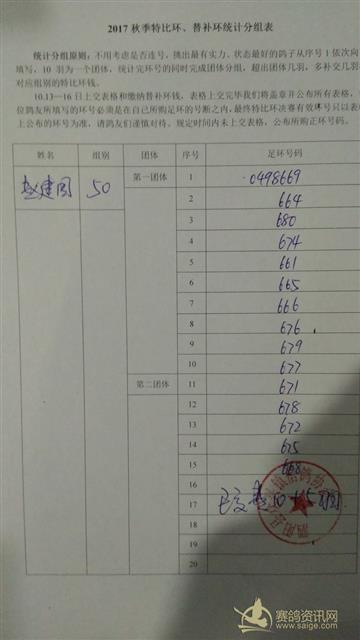 2017 秋季特比环、替补环统计分组表
统计分组原则:不用考虑是否连号,挑出最有实力、状态最好的鸽子从序号 1 依次向
填写,10 羽为一个团体,统计完环号的同时完成团体分组,超出团体几羽,多补交几
对应组别的特比环钱。
10.13—16 日上交表格和缴纳替补环钱,表格上交完毕我们将盖章并公布所有表格,
位鸽友所填写的环号必须是在自己所购足环的号断之内,最终特比决赛有效环号只以表
上公布的环号为准,请鸽友们谨慎对待。规定时间内未上交表格,公布所购正环号码。
姓名 组别 团体 序号 足环号码
赵建国 50 第一团体 1 0498669
2 664
3 680
4 674
5 661
6 665
7 666
8 676
9 679
10 677
第二团体 11 671
12 678
13 672
14 675
15 668
16
17 已交 10+5
18
19
20
赛鸽资讯网
www.saige.com